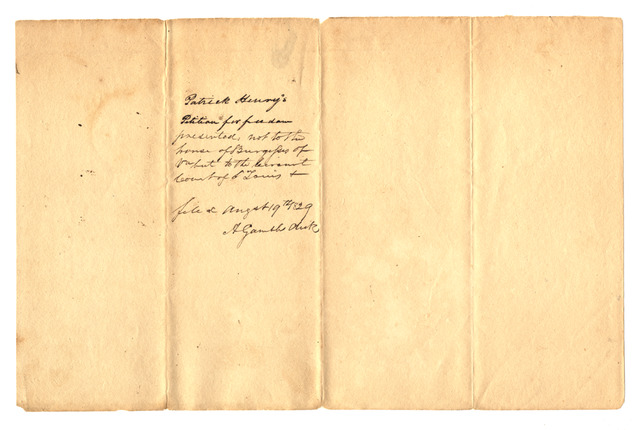 Patrick Henry's
Petition for freedom
presented, not to the
house of Burgesses of
Va but to the circuit
Court of St Louis +
filed August 19th 1829
A Gamble clerk